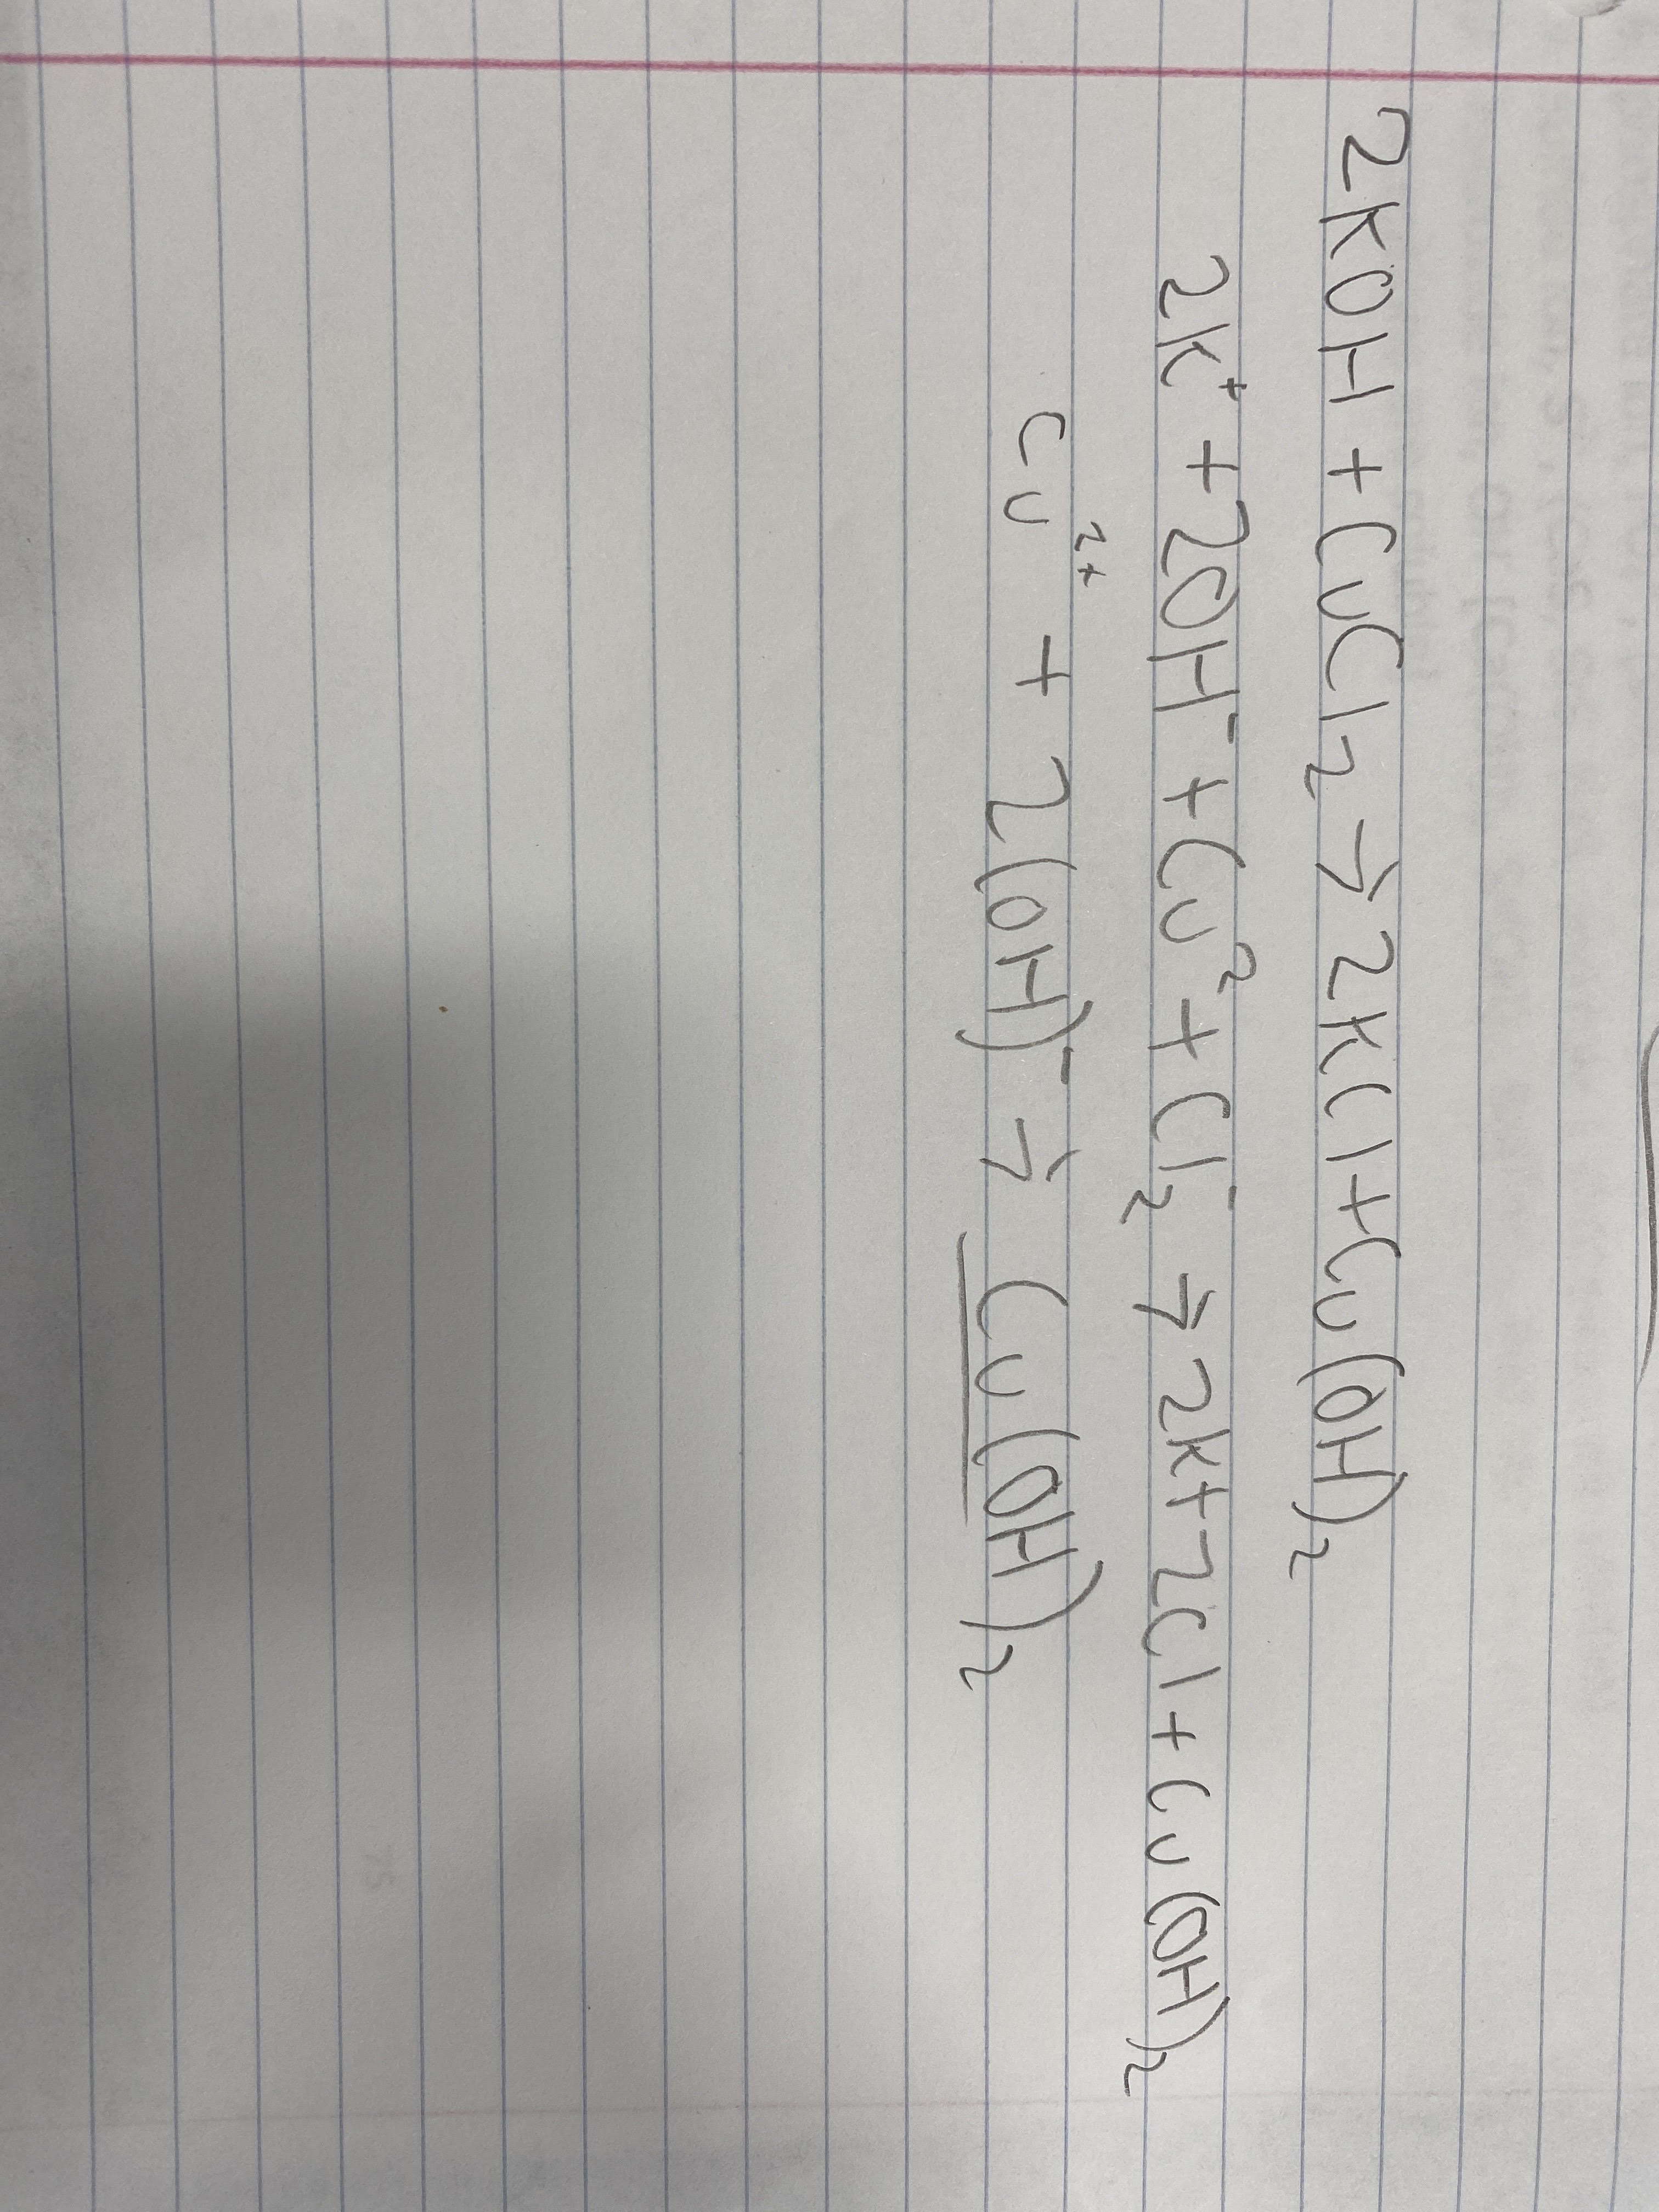 2KOH + CuCl₂ → 2KCl + Cu(OH)₂
2K⁺ + 2OH⁻ + Cu² + Cl₂⁻ → 2K + 2Cl + Cu(OH)₂
Cu²⁺ + 2(OH)⁻ → Cu(OH)₂